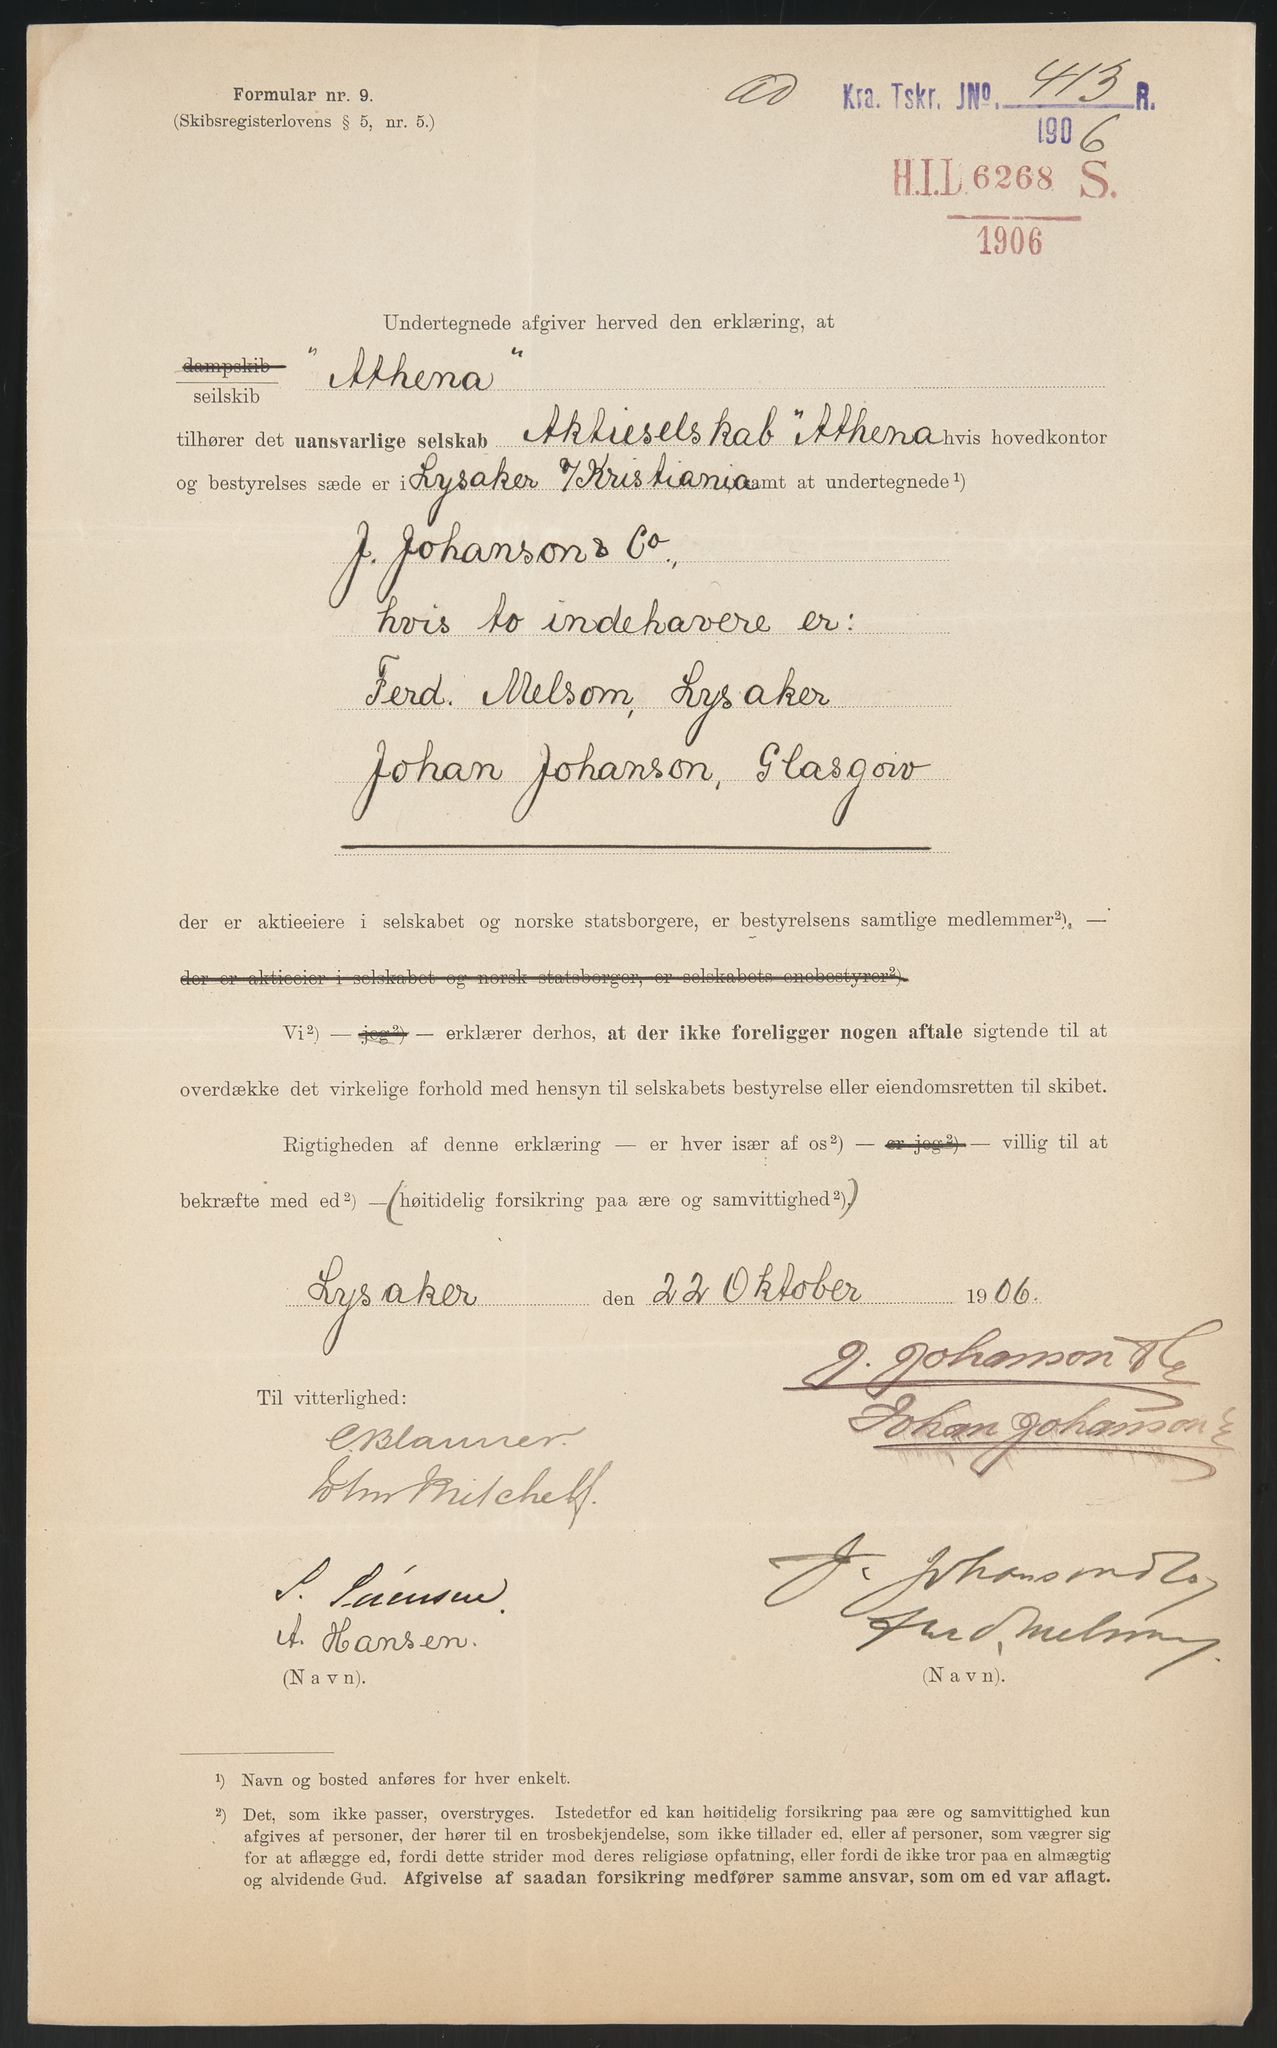 Formular nr. 9.
(Skibsregisterlovens § 5, nr. 5.)
ad Kra. Tskr. JNo. 413 R.
1906
H.I.L 6268 S.
1906
Undertegnede afgiver herved den erklæring, at
dampskib
seilskib "Athena"
tilhører det uansvarlige selskab Aktieselskab "Athena hvis hovedkontor
og bestyrelses sæde er i Lysaker /Kristiania samt at undertegnede ¹)
J. Johanson & Co.,
hvis to indehavere er:
Ferd. Melsom, Lysaker
Johan Johanson, Glasgow
der er aktieeiere i selskabet og norske statsborgere, er bestyrelsens samtlige medlemmer²), —
der er aktieeier i selskabet og norsk statsborger, er selskabets enebestyrer²).
Vi²) — jeg²) — erklærer derhos, at der ikke foreligger nogen aftale sigtende til at
overdække det virkelige forhold med hensyn til selskabets bestyrelse eller eiendomsretten til skibet.
Rigtigheden af denne erklæring — er hver især af os²) — er jeg²) — villig til at
bekræfte med ed²) — (høitidelig forsikring paa ære og samvittighed²).)
Lysaker den 22 Oktober 1906.
J. Johanson & Co
Til vitterlighed:
Johan Johanson
John Mitchell.
J. Johanson & Co
S. Sörensen.
Ferd. Melsom
A. Hansen.
(Navn). (Navn).
¹) Navn og bosted anføres for hver enkelt.
²) Det, som ikke passer, overstryges. Istedetfor ed kan høitidelig forsikring paa ære og samvittighed kun
afgives af personer, der hører til en trosbekjendelse, som ikke tillader ed, eller af personer, som vægrer sig
for at aflægge ed, fordi dette strider mod deres religiøse opfatning, eller fordi de ikke tror paa en almægtig
og alvidende Gud. Afgivelse af saadan forsikring medfører samme ansvar, som om ed var aflagt.